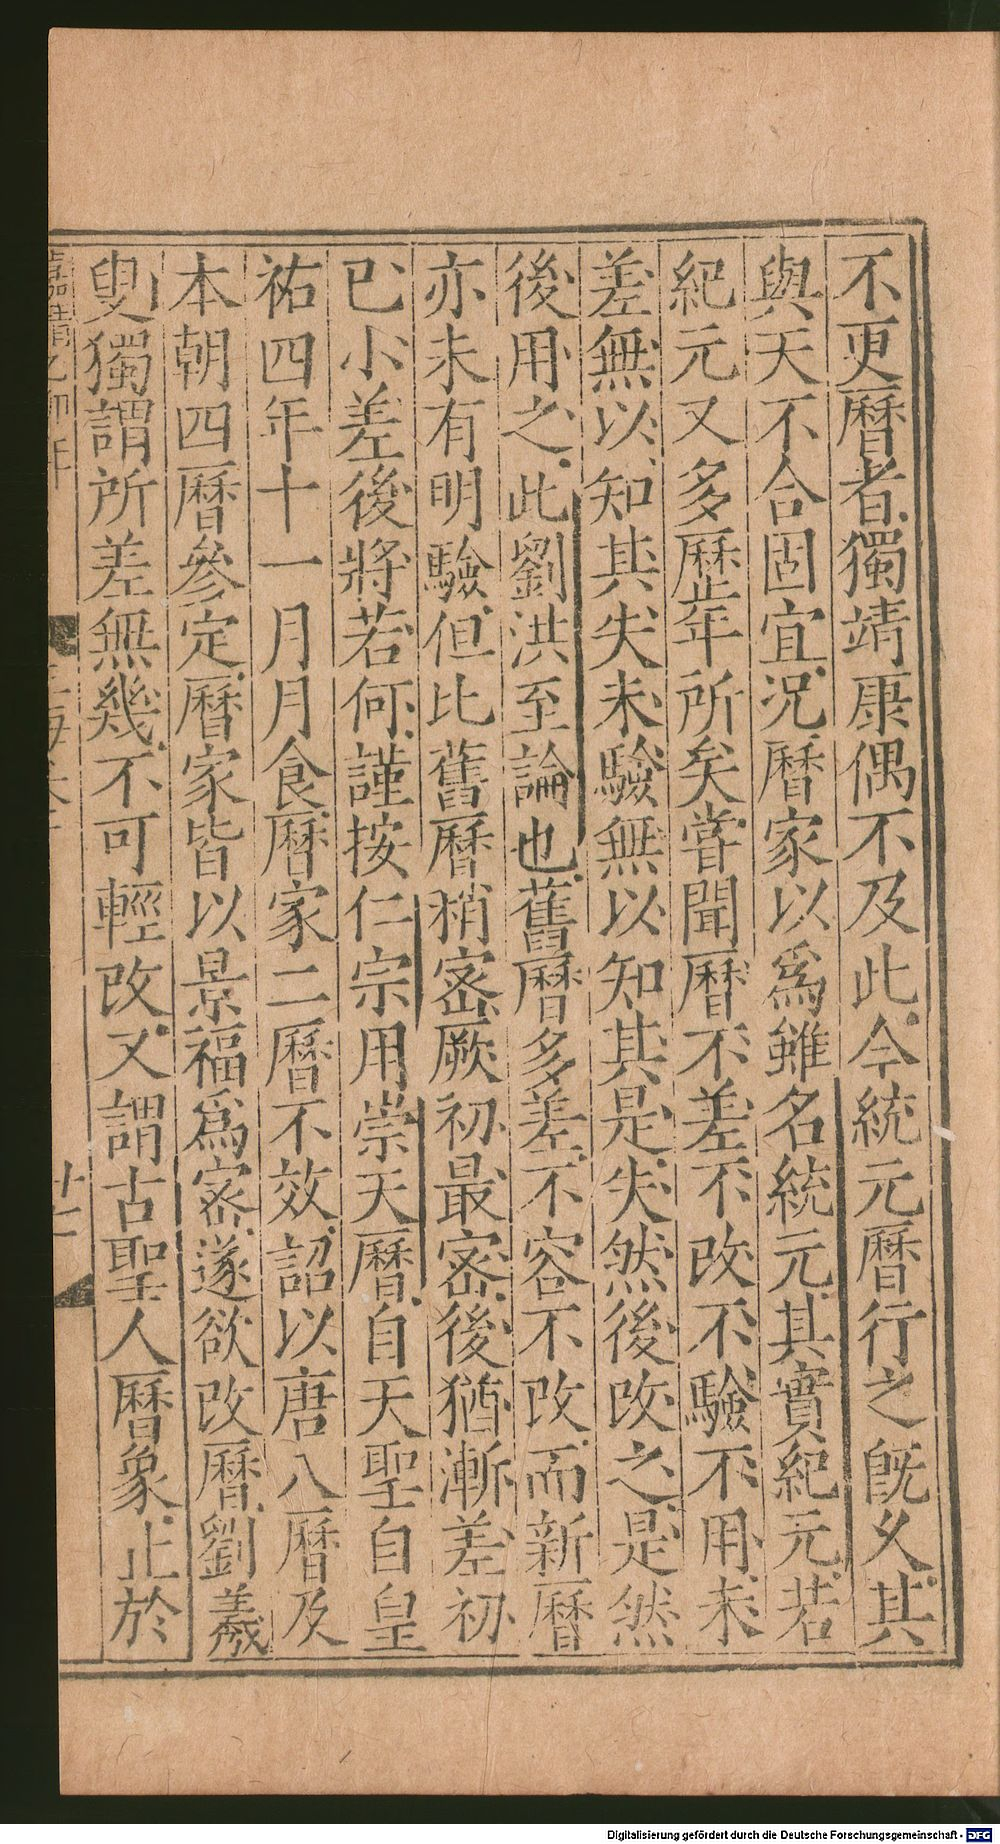 不更曆者獨靖康偶不及此今統元曆行之旣久其
與天不合固宜况曆家以爲雖名統元其實紀元若
紀元又多歷年所矣嘗聞曆不差不改不驗不用未
差無以知其失未驗無以知其是失然後改之是然
後用之此劉洪至論也舊曆多差不容不改而新曆
亦未有明驗但比舊曆稍密厥初最密後猶漸差初
已小差後將若何謹按仁宗用崇天曆自天聖自皇
祐四年十一月月食曆家二曆不效詔以唐八曆及
本朝四曆參定曆家皆以景福爲密遂欲改曆劉羲
叟獨謂所差無幾不可輕改又謂古聖人曆象止於
Digitalisierung gefördert durch die Deutsche Forschungsgemeinschaft - DFG